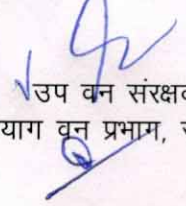 उप वन संरक्षक
याग वन प्रभाग,